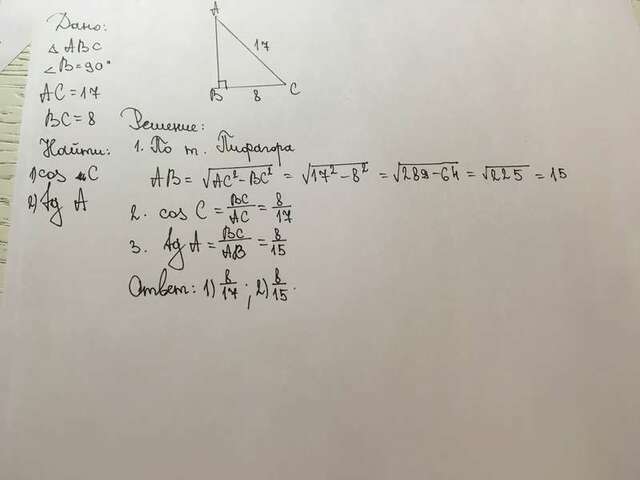 Дано:
△ ABC
∠B=90°
AC=17
BC=8
Найти:
1) cos C
2) tg A
A
17
B
8
C
Решение:
1. По т. Пифагора
AB = √(AC² - BC²) = √(17² - 8²) = √(289 - 64) = √225 = 15
2. cos C = BC/AC = 8/17
3. tg A = BC/AB = 8/15
Ответ: 1) 8/17; 2) 8/15.